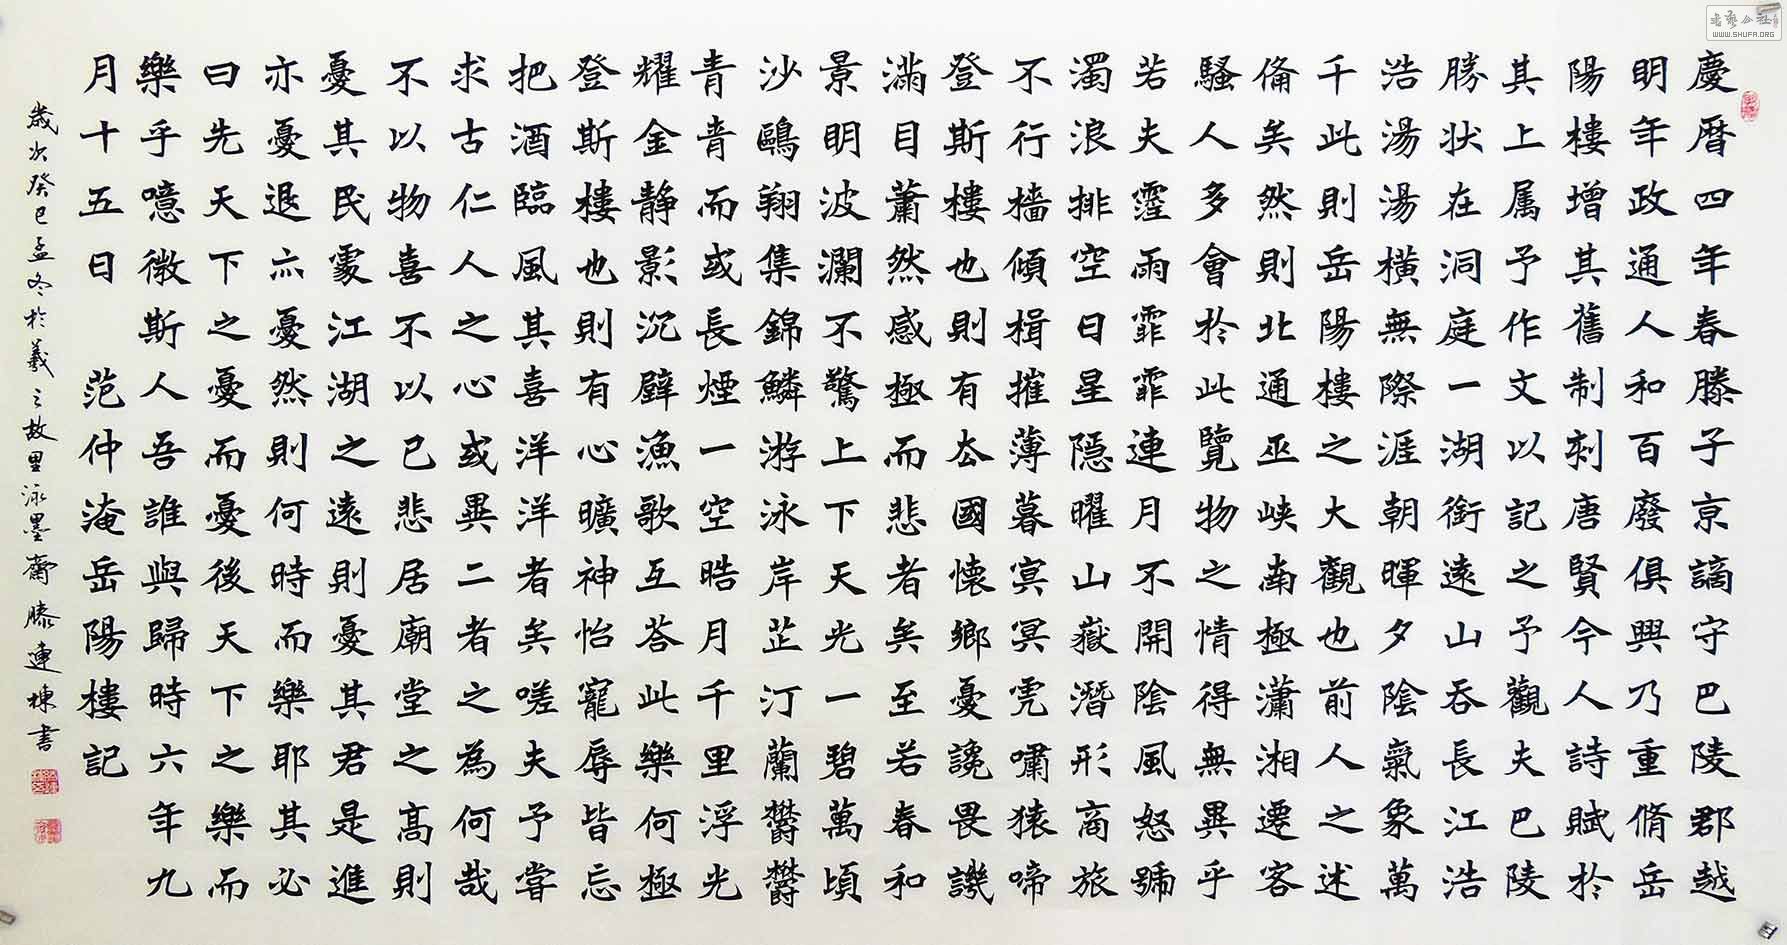 慶暦四年春滕子京謫守巴陵郡越
明年政通人和百廢俱興乃重脩岳
陽樓增其舊制刻唐賢今人詩賦於
其上属予作文以記之予觀夫巴陵
勝状在洞庭一湖銜遠山吞長江浩
浩湯湯橫無際涯朝暉夕陰氣象萬
千此則岳陽樓之大觀也前人之述
備矣然則北通巫峽南極瀟湘遷客
騷人多會於此覽物之情得無異乎
若夫霪雨霏霏連月不開陰風怒號
濁浪排空日星隱曜山嶽潛形商旅
不行檣傾楫摧薄暮冥冥虎嘯猿啼
登斯樓也則有去國懷鄉憂讒畏譏
滿目蕭然感極而悲者矣至若春和
景明波瀾不驚上下天光一碧萬頃
沙鷗翔集錦鱗游泳岸芷汀蘭鬱鬱
青青而或長煙一空皓月千里浮光
耀金静影沉璧漁歌互答此樂何極
登斯樓也則有心曠神怡寵辱皆忘
把酒臨風其喜洋洋者矣嗟夫予嘗
求古仁人之心或異二者之為何哉
不以物喜不以已悲居廟堂之高則
憂其民處江湖之遠則憂其君是進
亦憂退亦憂然則何時而樂耶其必
曰先天下之憂而憂後天下之樂而
樂乎噫微斯人吾誰與歸時六年九
月十五日 范仲淹岳陽樓記
歲次癸巳孟冬於羲之故里泳墨齋滕連棟書
书艺公社
WWW.SHUFA.ORG